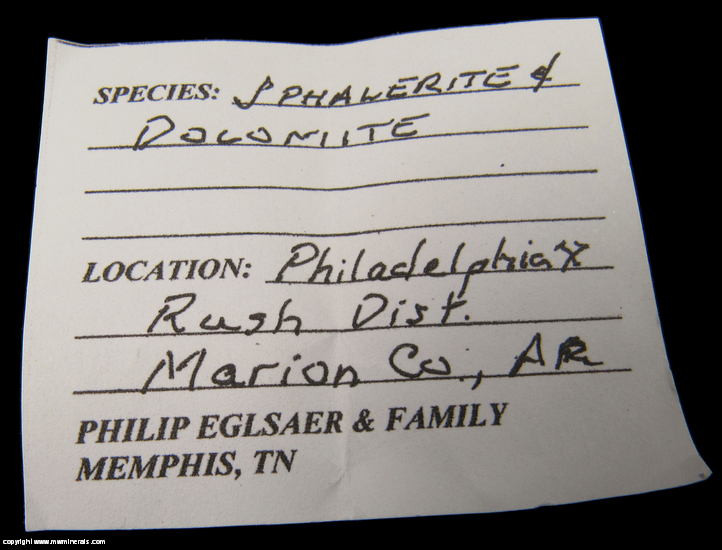 SPECIES: SPHALERITE &
DOLOMITE
LOCATION: Philadelphia X
Rush Dist.
Marion Co., AR
PHILIP EGLSAER & FAMILY
MEMPHIS, TN
copyright www.mwminerals.com